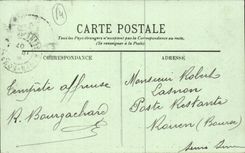 CARTE POSTALE
Tous les Pays étrangers n'acceptent pas la Correspondance au recto,
(Se renseigner à la Poste)
CORRESPONDANCE
ADRESSE
Tempête affreuse
R. Bourgachard
Monsieur Robert
Lasnon
Poste Restante
Rouen (Bourse)
Seine Infre